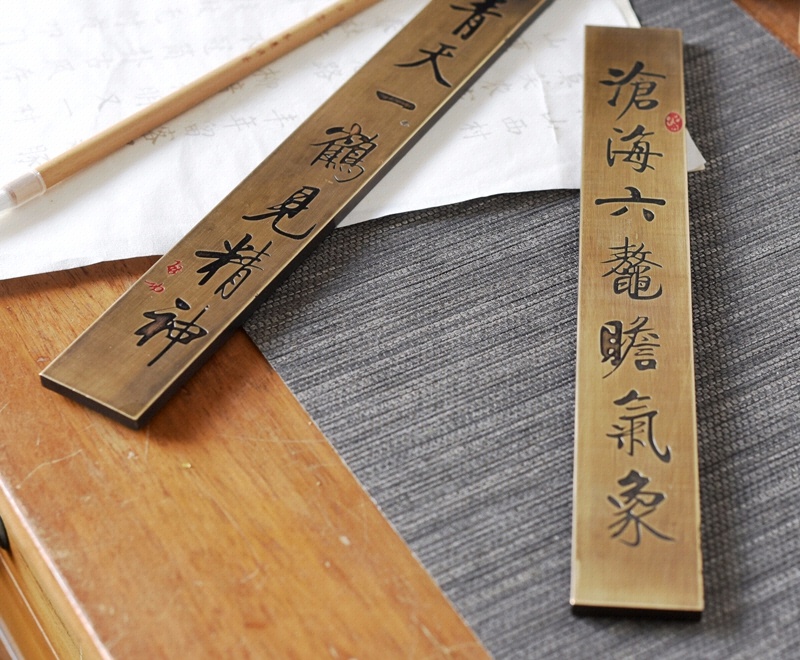 滄海六鼇瞻氣象
青天一鶴見精神